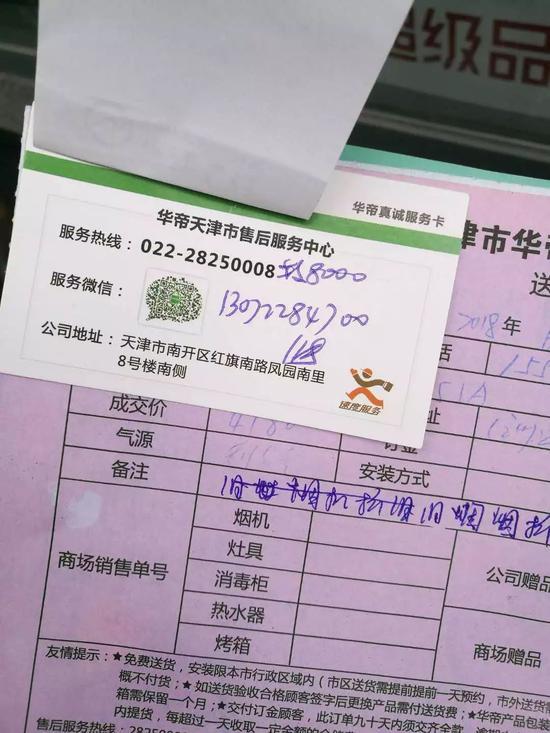 超级品
华帝真诚服务卡
华帝天津市售后服务中心
服务热线：022-28250008 转8000
服务微信：
13072284700
公司地址：天津市南开区红旗南路凤园南里
8号楼南侧
速度服务
津市华帝
送
2018年
话
155
51A
成交价
4180
址
订金
气源
备注
安装方式
商场销售单号
烟机
灶具
消毒柜
热水器
烤箱
公司赠品
商场赠品
友情提示：★免费送货，安装限本市行政区域内（市区送货需提前提前一天预约，市外送货需
概不付货；★如送货验收合格顾客签字后更换产品需付送货费；★华帝产品包装
箱需保留一个月；★交付订金顾客，此订单九十天内须交齐全款
内提货，每超过一天收取一定金额的仓储费